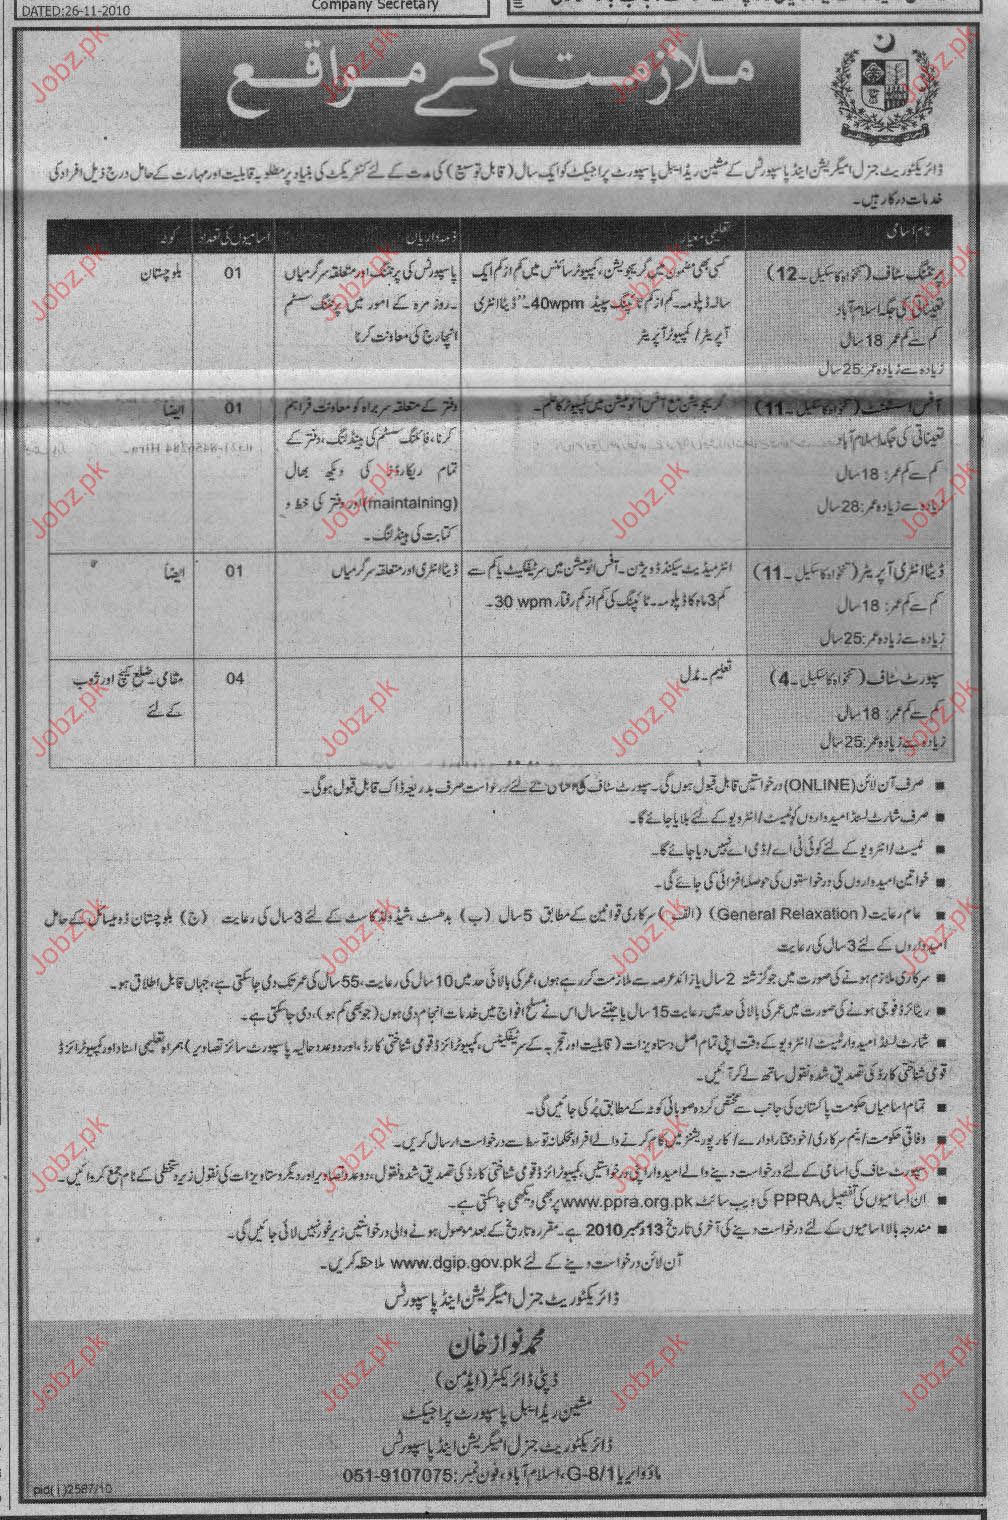 DATED:26-11-2010
Company Secretary
ملازمت کے مواقع
ڈائریکٹوریٹ جنرل امیگریشن اینڈ پاسپورٹس کے مشین ریڈایبل پاسپورٹ پراجیکٹ کو ایک سال (قابل توسیع) کی مدت کے لئے کنٹریکٹ کی بنیاد پر مطلوبہ قابلیت اور مہارت کے حامل درج ذیل افراد کی
خدمات درکار ہیں۔
نام اسامی
تعلیمی معیار
ذمہ داریاں
اسامیوں کی تعداد
کوٹہ
پرنٹنگ سٹاف (تنخواہ کا سکیل۔12)
تعیناتی کی جگہ اسلام آباد
کم سے کم عمر 18 سال
زیادہ سے زیادہ عمر:25 سال
کسی بھی مضمون میں گریجویشن، کمپیوٹر سائنس میں کم از کم ایک
سالہ ڈپلومہ۔ کم از کم ٹائپنگ سپیڈ 40wpm۔ "ڈیٹا انٹری
آپریٹر/ کمپیوٹر آپریٹر
پاسپورٹس کی پرنٹنگ اور متعلقہ سرگرمیاں
۔ روز مرہ کے امور میں پرنٹنگ سسٹم
انچارج کی معاونت کرنا
01
بلوچستان
آفس اسسٹنٹ (تنخواہ کا سکیل۔11)
تعیناتی کی جگہ اسلام آباد
کم سے کم عمر: 18 سال
زیادہ سے زیادہ عمر:28 سال
گریجویشن مع آفس آٹومیشن میں کمپیوٹر کا علم۔
دفتر کے متعلقہ سربراہ کو معاونت فراہم
کرنا، فائلنگ سسٹم کی ہینڈلنگ، دفتر کے
تمام ریکارڈز کی دیکھ بھال
(maintaining) اور دفتر کی خط و
کتابت کی ہینڈلنگ۔
01
ایضاً
ڈیٹا انٹری آپریٹر (تنخواہ کا سکیل۔11)
کم سے کم عمر: 18 سال
زیادہ سے زیادہ عمر:25 سال
انٹرمیڈیٹ سیکنڈ ڈویژن۔ آفس آٹومیشن میں سرٹیفکیٹ یا کم سے
کم 3 ماہ کا ڈپلومہ۔ ٹائپنگ کی کم از کم رفتار 30 wpm۔
ڈیٹا انٹری اور متعلقہ سرگرمیاں
01
ایضاً
سپورٹ سٹاف (تنخواہ کا سکیل۔4)
کم سے کم عمر: 18 سال
زیادہ سے زیادہ عمر:25 سال
تعلیم۔ مڈل
04
مقامی۔ ضلع کیچ اور ژوب
کے لئے
■ صرف آن لائن (ONLINE) درخواستیں قابل قبول ہوں گی۔ سپورٹ سٹاف کی کے لئے درخواست صرف بذریعہ ڈاک قابل قبول ہوگی۔
■ صرف شارٹ لسٹڈ امیدواروں کو ٹیسٹ/انٹرویو کے لئے بلایا جائے گا۔
■ ٹیسٹ/انٹرویو کے لئے کوئی ٹی اے/ڈی اے نہیں دیا جائے گا۔
■ خواتین امیدواروں کی درخواستوں کی حوصلہ افزائی کی جائے گی۔
■ عام رعایت (General Relaxation) (الف) سرکاری قوانین کے مطابق 5 سال (ب) بدھسٹ، شیڈولڈ کاسٹ کے لئے 3 سال کی رعایت (ج) بلوچستان ڈومیسائل کے حامل
امیدواروں کے لئے 3 سال کی رعایت
■ سرکاری ملازم ہونے کی صورت میں جو گزشتہ 2 سال یا زائد عرصہ سے ملازمت کر رہے ہوں، عمر کی بالائی حد میں 10 سال کی رعایت، 55 سال کی عمر تک دی جا سکتی ہے، جہاں قابل اطلاق ہو۔
■ ریٹائرڈ فوجی ہونے کی صورت میں عمر کی بالائی حد میں رعایت 15 سال یا جتنے سال اس نے مسلح افواج میں خدمات انجام دی ہوں (جو بھی کم ہو)، دی جا سکتی ہے۔
■ شارٹ لسٹڈ امیدوار ٹیسٹ/انٹرویو کے وقت اپنی تمام اصل دستاویزات (قابلیت اور تجربہ کے سرٹیفکیٹس، کمپیوٹرائزڈ قومی شناختی کارڈ، اور دو عدد حالیہ پاسپورٹ سائز تصاویر) ہمراہ تعلیمی اسناد اور کمپیوٹرائزڈ
قومی شناختی کارڈ کی تصدیق شدہ نقول ساتھ لے کر آئیں۔
■ تمام اسامیاں حکومت پاکستان کی جانب سے مختص کردہ صوبائی کوٹہ کے مطابق پُر کی جائیں گی۔
■ وفاقی حکومت/نیم سرکاری/خود مختار ادارے/کارپوریشنز میں کام کرنے والے افراد محکمانہ توسط سے درخواست ارسال کریں۔
■ سپورٹ سٹاف کی اسامی کے لئے درخواست دینے والے امیدوار اپنی درخواستیں، کمپیوٹرائزڈ قومی شناختی کارڈ کی تصدیق شدہ نقول، دو عدد تصاویر اور دیگر دستاویزات کی نقول زیر دستخطی کے نام جمع کروائیں۔
■ ان اسامیوں کی تفصیل PPRA کی ویب سائٹ www.ppra.org.pk پر بھی دیکھی جا سکتی ہے۔
■ مندرجہ بالا اسامیوں کے لئے درخواست دینے کی آخری تاریخ 13 دسمبر 2010 ہے۔ مقررہ تاریخ کے بعد موصول ہونے والی درخواستیں زیر غور نہیں لائی جائیں گی۔
آن لائن درخواست دینے کے لئے www.dgip.gov.pk ملاحظہ کریں۔
ڈائریکٹوریٹ جنرل امیگریشن اینڈ پاسپورٹس
محمد نواز خان
ڈپٹی ڈائریکٹر (ایڈمن)
مشین ریڈایبل پاسپورٹ پراجیکٹ
ڈائریکٹوریٹ جنرل امیگریشن اینڈ پاسپورٹس
ماؤ و ایریا G-8/1، اسلام آباد، فون نمبر: 051-9107075
pid(i)2587/10
Jobz.pk